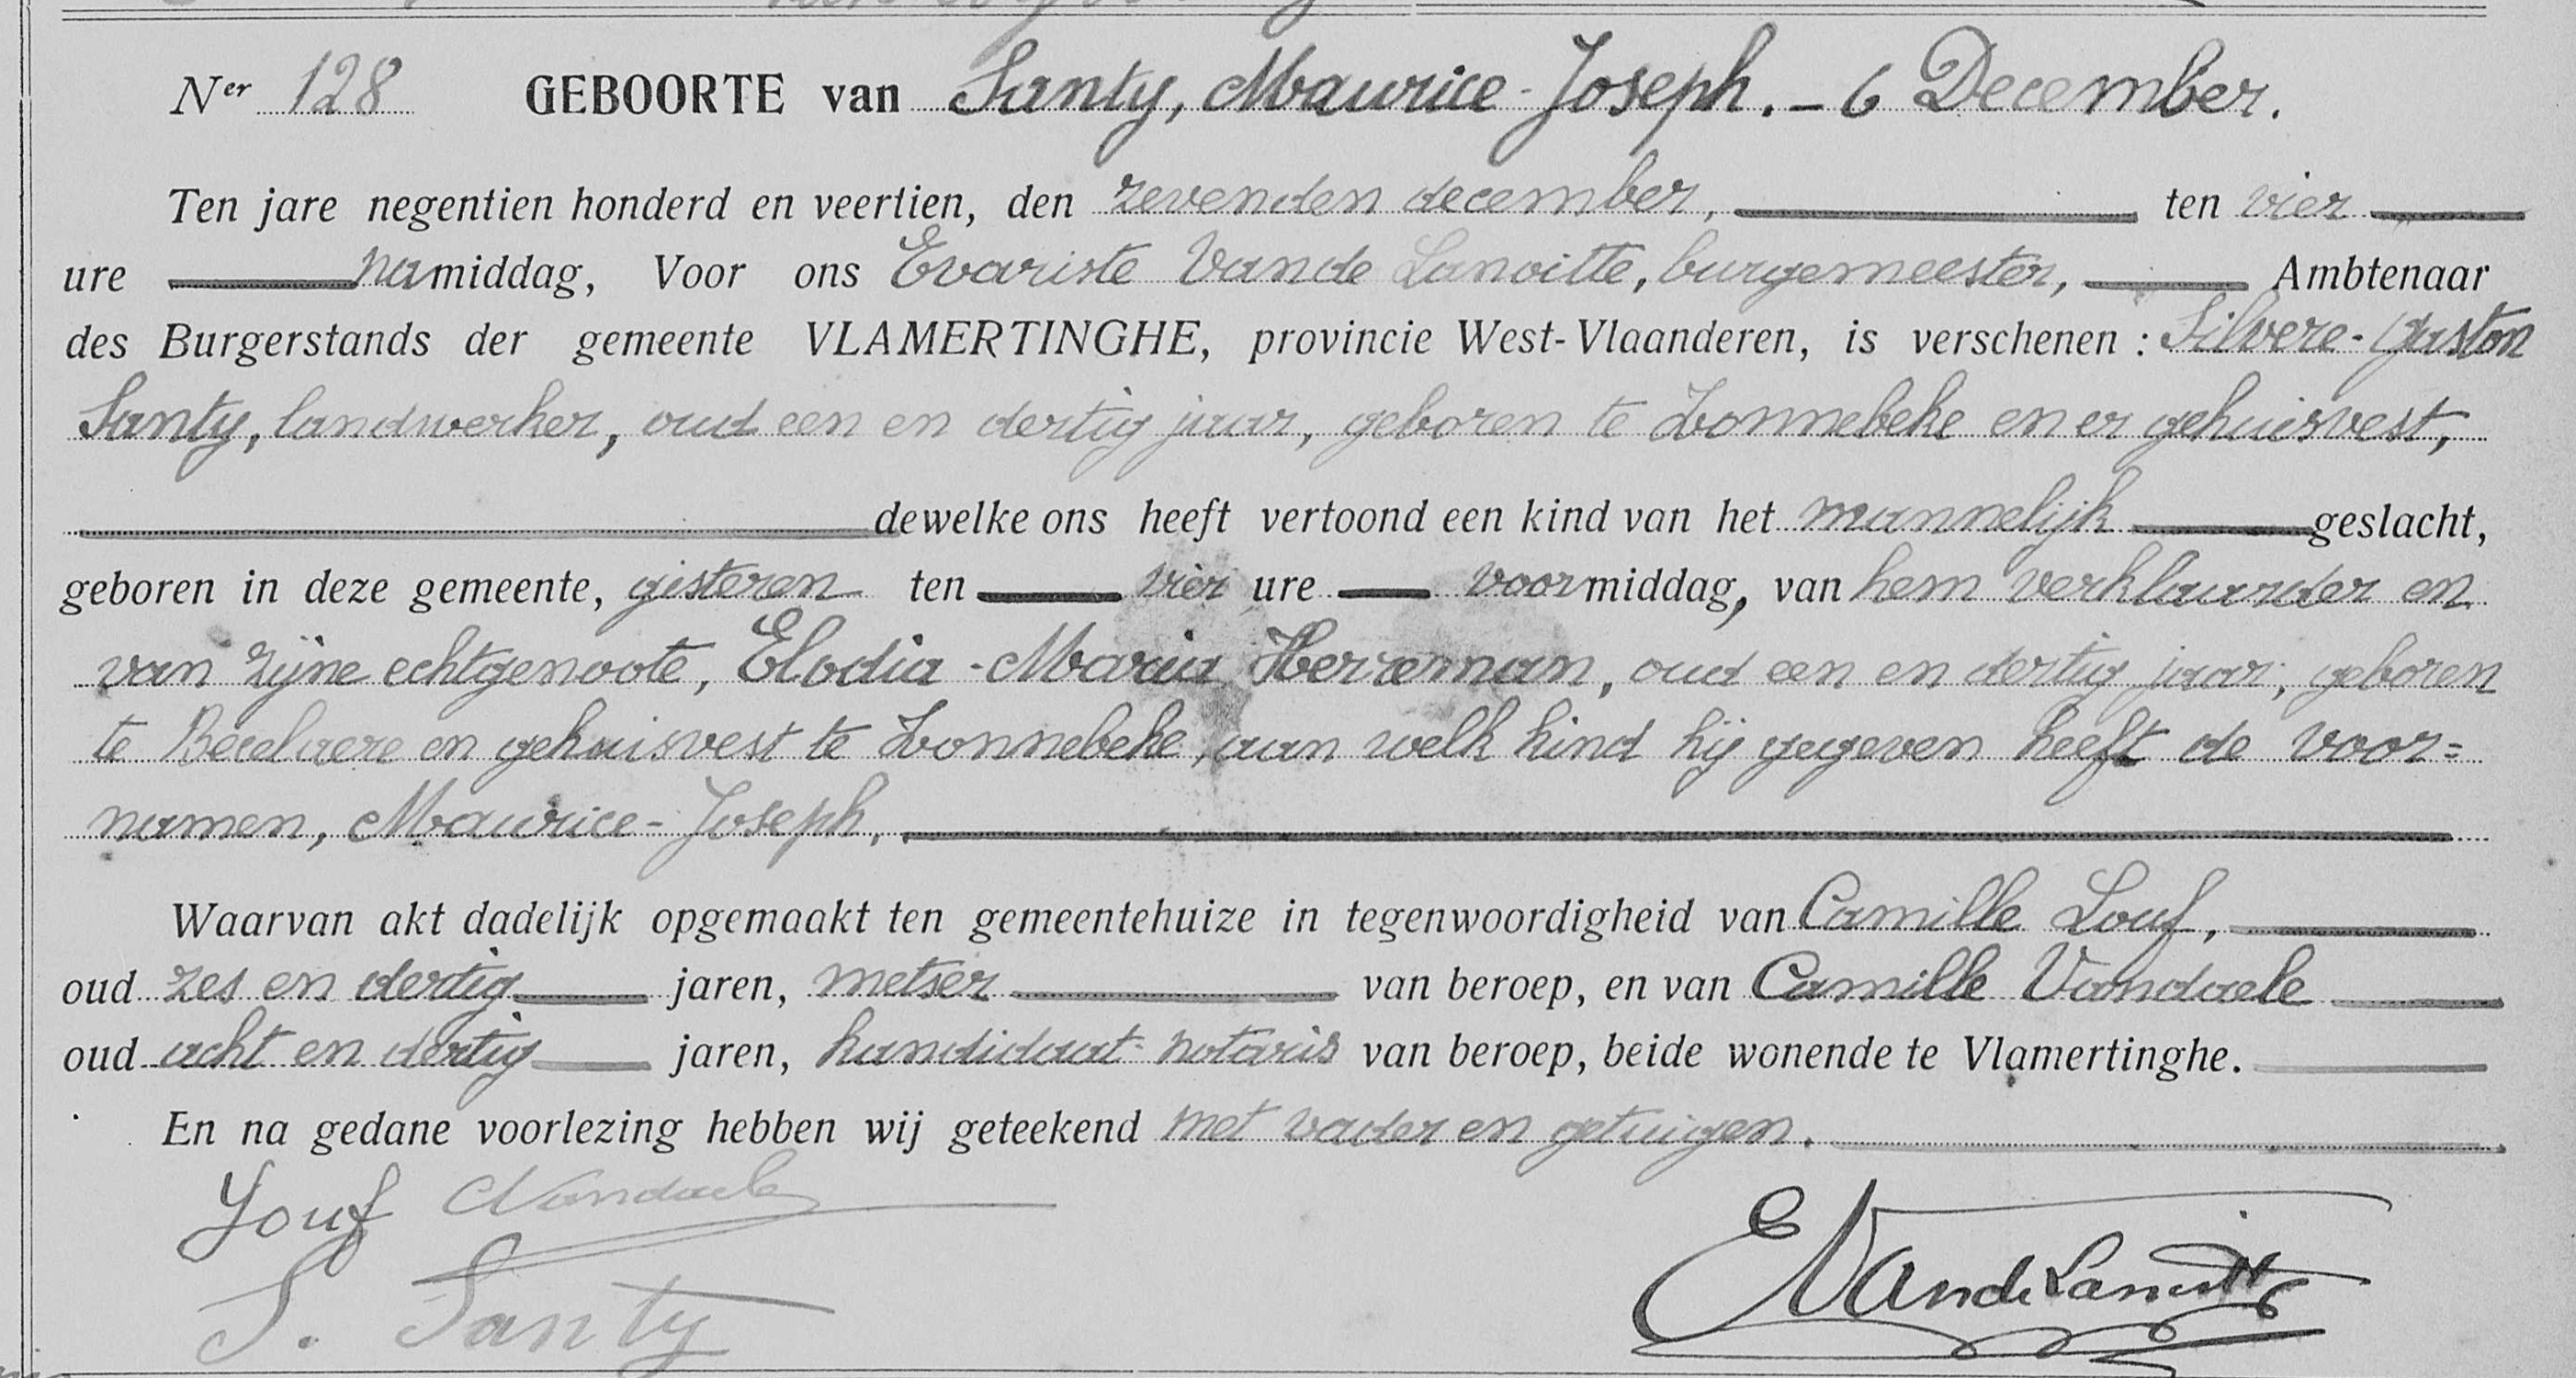 Ner 128 GEBOORTE van Santy, Maurice-Joseph. - 6 December.
Ten jare negentien honderd en veertien, den zevenden december, ten vier
ure namiddag, Voor ons Evariste Vande Lanoitte, burgemeester, Ambtenaar
des Burgerstands der gemeente VLAMERTINGHE, provincie West-Vlaanderen, is verschenen : Silvere-Gaston
Santy, landwerker, oud een en dertig jaar, geboren te Zonnebeke en er gehuisvest,
dewelke ons heeft vertoond een kind van het mannelijk geslacht,
geboren in deze gemeente, gisteren ten vier ure voormiddag, van hem verklaarder en
van zijne echtgenoote, Elodia-Maria, oud een en dertig jaar, geboren
te Becelaere en gehuisvest te Zonnebeke, aan welk kind hij gegeven heeft de voor=
namen, Maurice-Joseph,
Waarvan akt dadelijk opgemaakt ten gemeentehuize in tegenwoordigheid van Camille Louf,
oud zes en dertig jaren, metser van beroep, en van Camille Vandaele
oud acht en dertig jaren, kandidaat-notaris van beroep, beide wonende te Vlamertinghe.
En na gedane voorlezing hebben wij geteekend met vader en getuigen.
Louf CVandaele
S. Santy EVandeLanoitte